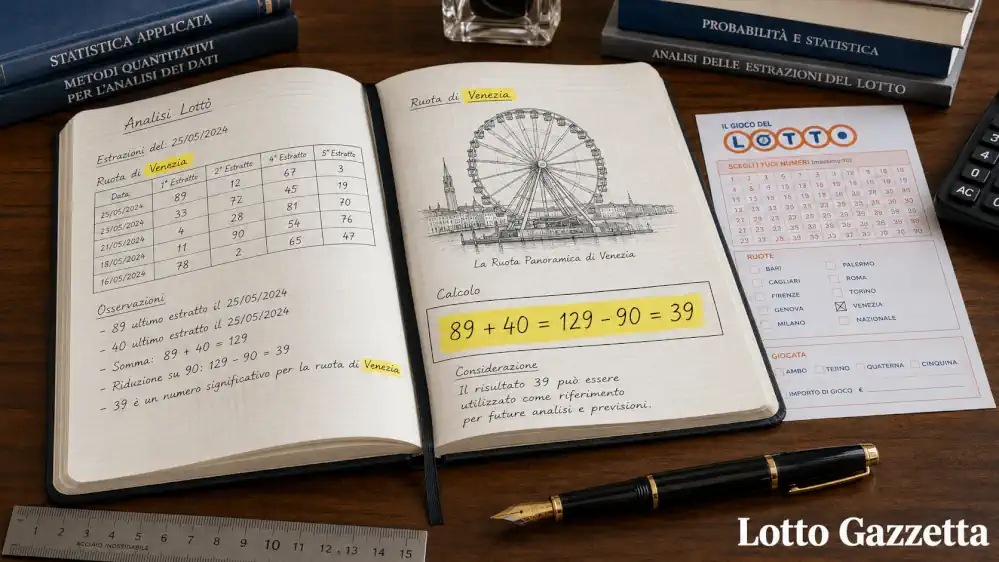 STATISTICA APPLICATA
METODI QUANTITATIVI
PER L'ANALISI DEI DATI
PROBABILITÀ E STATISTICA
ANALISI DELLE ESTRAZIONI DEL LOTTO
Analisi Lotto
Estrazioni del. 25/05/2024
Ruota di Venezia
Data 1° Estratto 2° Estratto 4° Estratto 5° Estratto
25/05/2024 89 12 67 3
23/05/2024 33 72 45 19
21/05/2024 4 28 81 70
18/05/2024 11 90 54 76
16/05/2024 78 2 65 47
Osservazioni
- 89 ultimo estratto il 25/05/2024
- 40 ultimo estratto il 25/05/2024
- Somma: 89 + 40 = 129
- Riduzione su 90: 129 - 90 = 39
- 39 è un numero significativo per la ruota di Venezia
Ruota di Venezia
La Ruota Panoramica di Venezia
Calcolo
89 + 40 = 129 - 90 = 39
Considerazione
Il risultato 39 può essere
utilizzato come riferimento
per future analisi e previsioni.
IL GIOCO DEL
LOTTO
SCEGLI I TUOI NUMERI
RUOTE
BARI PALERMO
CAGLIARI ROMA
FIRENZE TORINO
GENOVA VENEZIA
MILANO NAZIONALE
GIOCATA
AMBO TERNO QUATERNA CINQUINA
IMPORTO DI GIOCO €
AC
1 2 3 4 5 6 7 8 9 10 11 12 13 14 15
Lotto Gazzetta